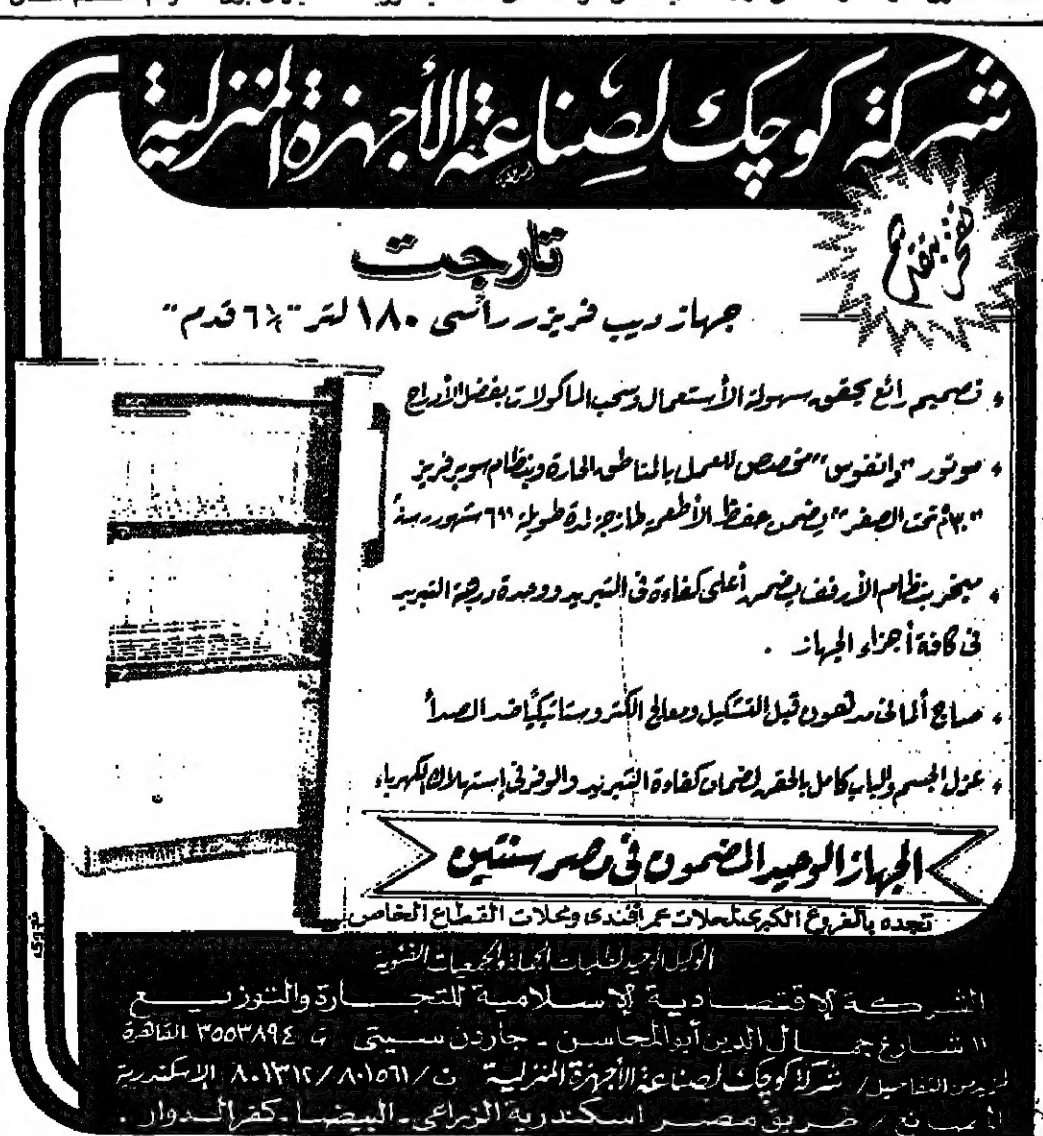 شركة كوچك لصناعة الأجهزة المنزلية
تفخر بتقديم
تارجت
جهاز ديب فريزر رأسى ١٨٠ لتر "½ ٦ قدم"
تصميم رائع يحقق سهولة الأستعمال وسحب المأكولات بفضل الأدراج
موتور "دانفوس" مخصص للعمل بالمناطق الحارة وبنظام سوبر فريز
"٣٠°م تحت الصفر" يضمن حفظ الأطعمة طازجة لمدة طويلة "٦ شهور
مبخر بنظام الأرفف يضمن أعلى كفاءة فى التبريد ووحدة درجة التبريد
فى كافة أجزاء الجهاز .
صاج ألمانى مدهون قبل التشكيل ومعالج الكتروستاتيكيًا ضد الصدأ
عزل الجسم والباب كامل بالحقن لضمان كفاءة التبريد والوفر فى إستهلاك الكهرباء
الجهاز الوحيد المضمون فى مصر سنتين
تجده بالفروع الكبرى لمحلات عمر أفندى ومحلات القطاع الخاص
الوكيل الوحيد لطلبات الجملة والجمعيات الفئوية
الشركة الإقتصادية الإسلامية للتجارة والتوزيع
١١ شارع جمال الدين أبو المحاسن - جاردن سيتى ت ٣٥٥٣٨٩٤ القاهرة
لمزيد من التفاصيل / شركة كوچك لصناعة الأجهزة المنزلية ت / ٨٠١٥٦١ / ٨٠١٣١٢ الإسكندرية
المصانع / طريق مصر اسكندرية الزراعى - البيضا - كفر الدوار .